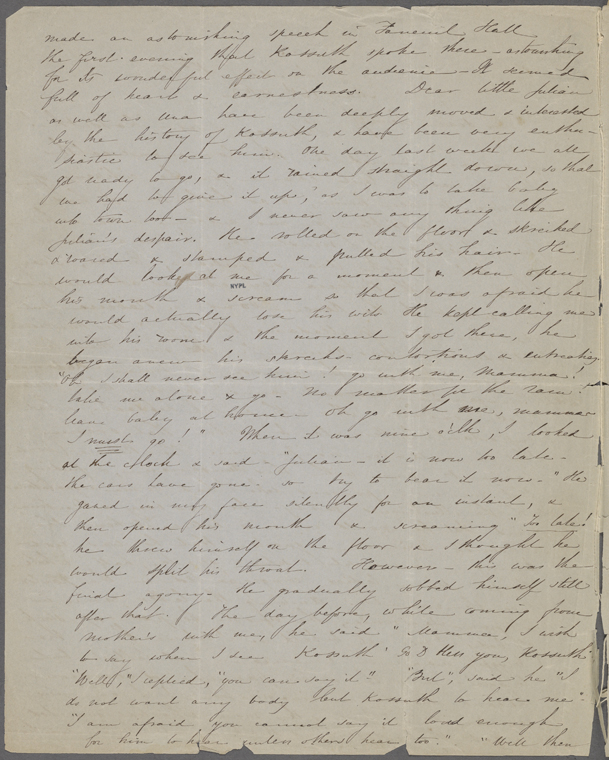 made an astonishing speech in Faneuil Hall
the first evening that Kossuth spoke there - astonishing
for its wonderful effect on the audience - It seemed
full of heart & earnestness. Dear little Julian
as well as Una have been deeply moved & interested
by the history of Kossuth, & have been very enthu-
siastic to see him. One day last week we all
got ready to go, & it rained straight down, so that
we had to give it up, as I was to take baby
into town too - & I never saw any thing like
Julian's despair. He rolled on the floor & shrieked
& roared & stamped & pulled his hair. He
would look at me for a moment & then open
NYPL
his mouth & scream so that I was afraid he
would actually lose his wits. He kept calling me
into his room & the moment I got there, he
began anew his shrieks - contortions & entreaties
"Oh I shall never see him! go with me, Mamma!
take me alone & go - No matter for the rain!
leave baby at home. Oh go with me, mamma
I must go!" When it was nine o'clk, I looked
at the clock & said - "Julian - it is now too late -
the cars have gone - so try to bear it now -" He
gazed in my face silently for an instant, &
then opened his mouth & screaming "Too late!"
he threw himself on the floor & I thought he
would split his throat. However - this was the
final agony - He gradually sobbed himself still
after that. The day before, while coming from
mother's with me, he said "Mamma, I wish
to say when I see Kossuth 'God bless you, Kossuth'"
"Well," I replied, "you can say it." "But", said he "I
do not want any body but Kossuth to hear me -"
"I am afraid you cannot say it loud enough
for him to hear unless others hear too." "Well then